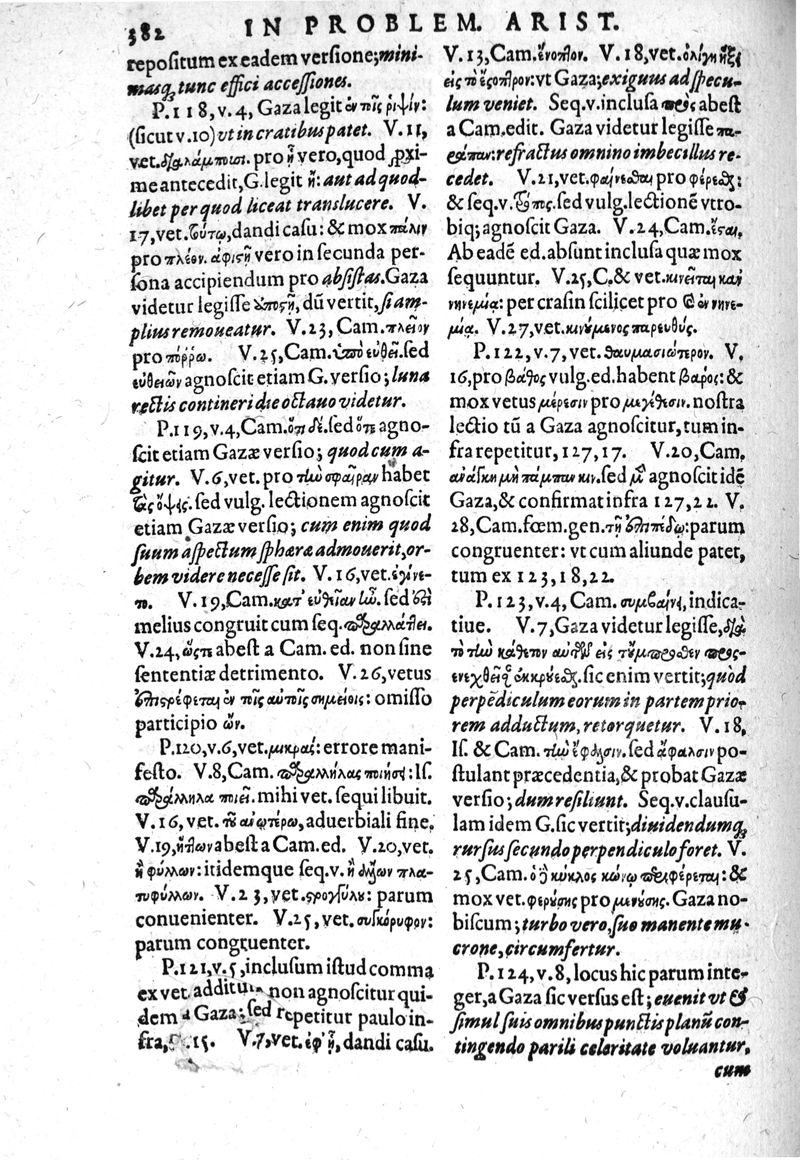 382 IN PROBLEM. ARIST.
repositum ex eadem versione; mini-
masq, tunc effici accessiones.
P.118, v.4, Gaza legit ἐν ταῖς ῥιψὶν:
(sicut v.10) vt in cratibus patet. V.11,
vet. διαλάμπουσι. pro ἢ vero, quod proxi-
me antecedit, G. legit ἢ: aut ad quod-
libet per quod liceat translucere. V.
17, vet. τούτῳ, dandi casu: & mox πάλιν
pro πλέον. vero in secunda per-
sona accipiendum pro absistas. Gaza
videtur legisse dũ vertit, si am-
plius remoueatur. V.23, Cam. πλεῖον
pro πόῤῥω. V.25, Cam. ὑπὸ εὐθεῖ. sed
εὐθειῶν agnoscit etiam G. versio; luna
rectis contineri die octauo videtur.
P.119, v.4, Cam. ὅτι δὲ. sed ὅτε agno-
scit etiam Gazæ versio; quod cum a-
gitur. V.6, vet. pro τὴν σφαῖραν habet
τὰς ὄψεις. sed vulg. lectionem agnoscit
etiam Gazæ versio; cum enim quod
suum aspectum sphæræ admouerit, or-
bem videre necesse sit. V.16, vet. ἐγίνε-
το. V.19, Cam. κατ' εὐθεῖαν ἦν. sed ἐπὶ
melius congruit cum seq. παραλλάττει.
V.24, ὥστε abest a Cam. ed. non sine
sententiæ detrimento. V.26, vetus
ἐπιστρέφεται ἐν τοῖς αὐτοῖς σημείοις: omisso
participio ὤν.
P.120, v.6, vet. μικραί: errore mani-
festo. V.8, Cam. παραλλήλας ποιήσῃ: Is.
παράλληλα ποιεῖ. mihi vet. sequi libuit.
V.16, vet. τοῦ ἀνωτέρω, aduerbiali fine.
V.19, abest a Cam. ed. V.20, vet.
ἢ φύλλων: itidemque seq. v. ἢ πλα-
τυφύλλων. V.23, vet. στρογγύλου: parum
conuenienter. V.25, vet. συγκόρυφον:
parum congruenter.
P.121, v.5, inclusum istud comma
ex vet. additum non agnoscitur qui-
dem a Gaza; sed repetitur paulo in-
fra, 15. V.7, vet. ἐφ' ᾗ, dandi casu.
V.13, Cam. ἔνοπλον. V.18, vet. ὀλίγη ἥξει
εἰς τὸ ἔσοπτρον: vt Gaza; exiguus ad specu-
lum veniet. Seq. v. inclusa πρὸς abest
a Cam. edit. Gaza videtur legisse πα-
ράπαν: refractus omnino imbecillus re-
cedet. V.21, vet. φαίνεσθαι pro φέρεσθαι:
& seq. v. sed vulg. lectionē vtro-
biq; agnoscit Gaza. V.24, Cam. ἔσται.
Ab eadē ed. absunt inclusa quæ mox
sequuntur. V.25, C. & vet. κινεῖται κἀν
νηνεμία: per crasin scilicet pro καὶ ἐν νηνε-
μίᾳ. V.27, vet. κινούμενος παρευθύς.
P.122, v.7, vet. θαυμασιώτερον. V.
16, pro βάθος vulg. ed. habent βάρος: &
mox vetus μέρεσιν pro μεγέθεσιν. nostra
lectio tũ a Gaza agnoscitur, tum in-
fra repetitur, 127,17. V.20, Cam.
ἀνάγκη μὴ πάμπαν κιν. sed μὲν agnoscit idē
Gaza, & confirmat infra 127,22. V.
28, Cam. fœm. gen. τῇ ἐπιπέδῳ: parum
congruenter: vt cum aliunde patet,
tum ex 123,18,22.
P.123, v.4, Cam. συμβαίνει, indica-
tiue. V.7, Gaza videtur legisse, διὰ
τὸ τὴν κάθετον αὐτῶν εἰς τοὔμπροσθεν προσ-
ενεχθεῖσαν ἐκκρούεσθαι. sic enim vertit; quòd
perpēdiculum eorum in partem prio-
rem adductum, retorquetur. V.18,
Is. & Cam. τὴν ἔφαλσιν. sed ἄφαλσιν po-
stulant præcedentia, & probat Gazæ
versio; dum resiliunt. Seq. v. clausu-
lam idem G. sic vertit; diuidendumq,
rursus secundo perpendiculo foret. V.
25, Cam. ὁ κύκλος κώνῳ περιφέρεται: &
mox vet. φερούσης pro μενούσης. Gaza no-
biscum; turbo vero, suo manente mu-
crone, circumfertur.
P.124, v.8, locus hic parum inte-
ger, a Gaza sic versus est; euenit vt &
simul suis omnibus punctis planũ con-
tingendo parili celeritate voluantur,
cum